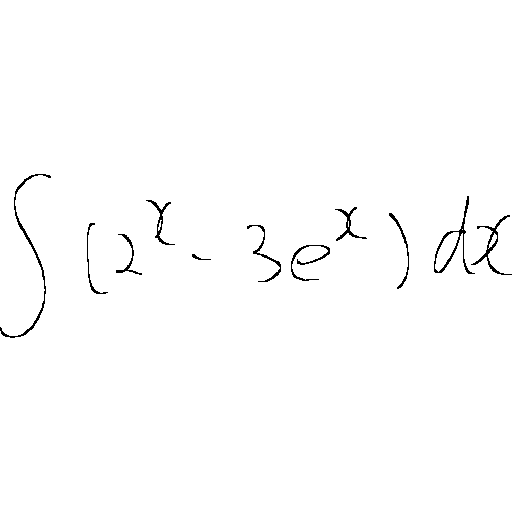 ∫ (2^x - 3e^x) dx